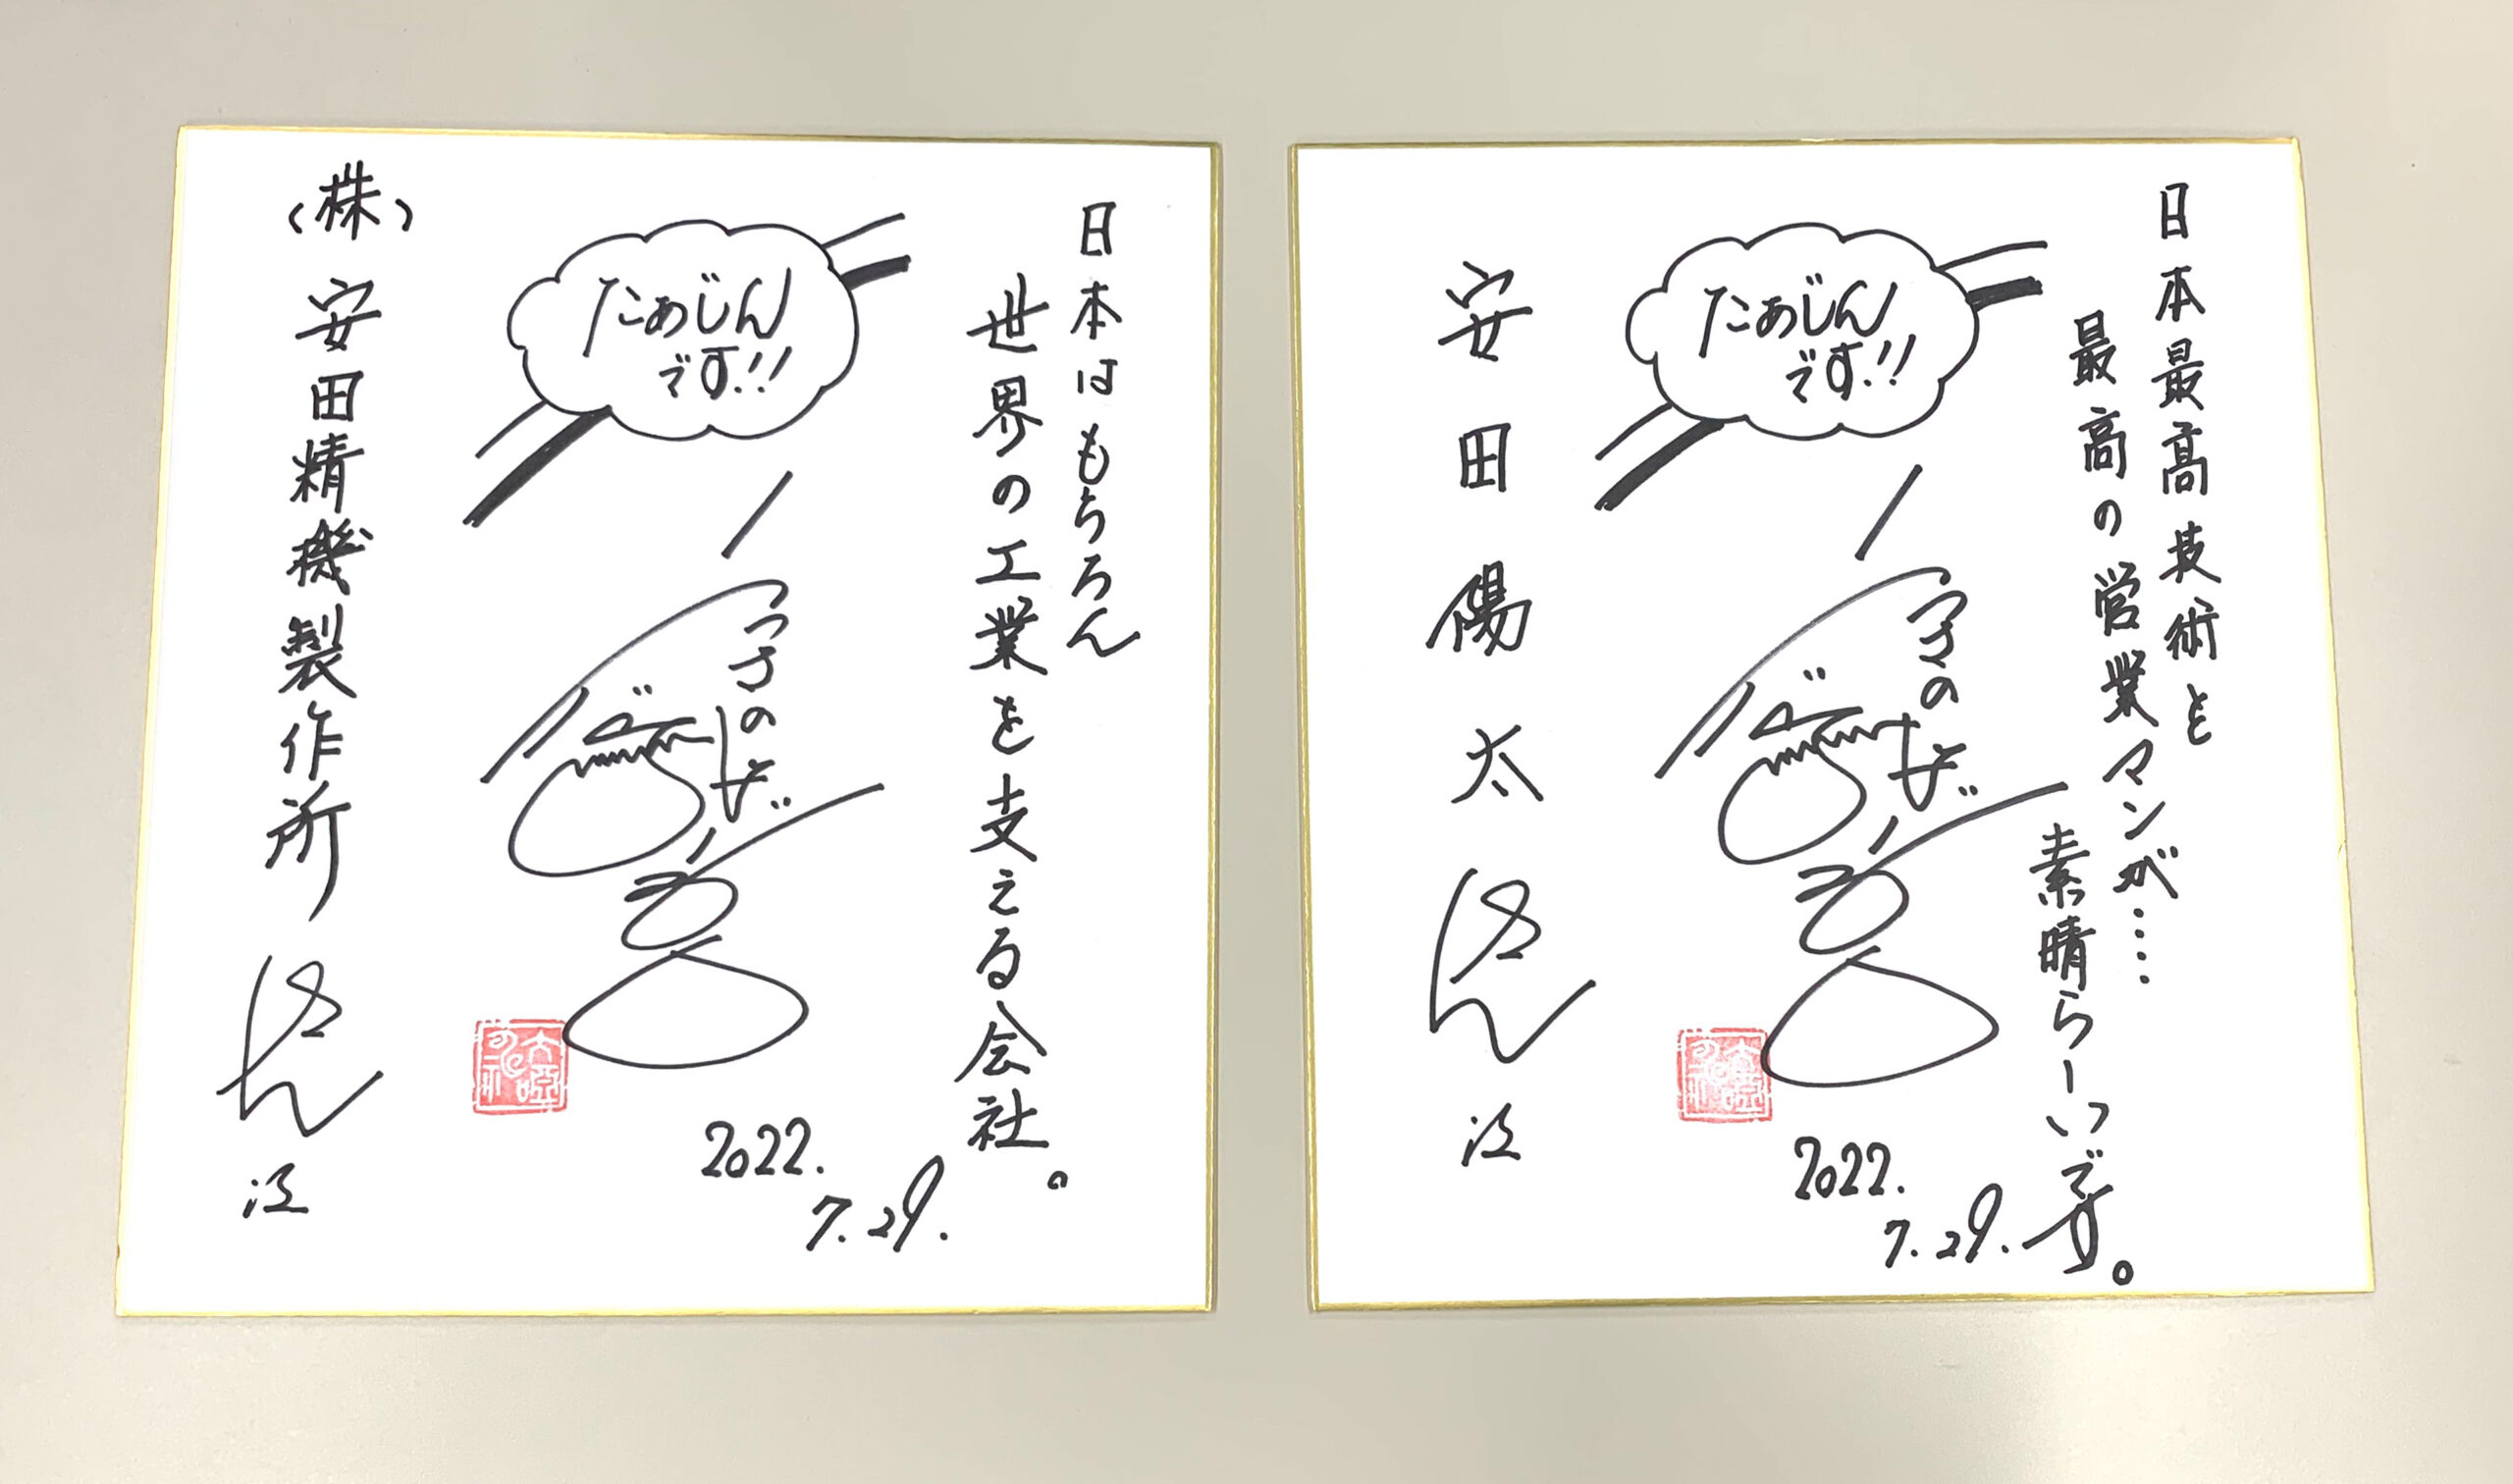 日本はもちろん
世界の工業を支える会社。
たあじん
です!!
2022.
7.29.
(株)安田精機製作所 さん江
日本最高技術と
最高の営業マンが……
素晴らーいです。
たあじん
です!!
2022.
7.29.
安田陽太 さん江